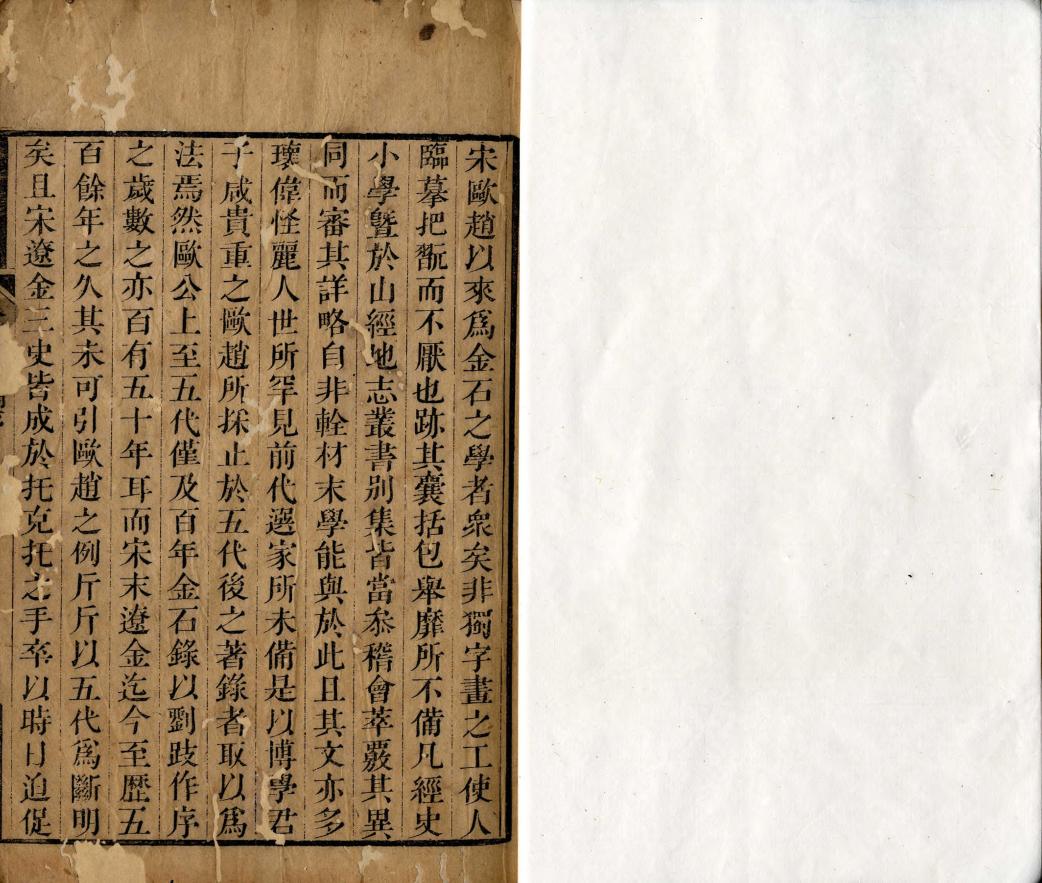 宋歐趙以來爲金石之學者衆矣非獨字畫之工使人
臨摹把翫而不厭也跡其囊括包舉靡所不備凡經史
小學曁於山經地志叢書别集皆當叅稽會萃覈其異
同而審其詳略自非輇材末學能與於此且其文亦多
瓌偉怪麗人世所罕見前代選家所未備是以博學君
子咸貴重之歐趙所採止於五代後之著錄者取以爲
法焉然歐公上至五代僅及百年金石錄以劉跂作序
之歲數之亦百有五十年耳而宋末遼金迄今至歷五
百餘年之久其未可引歐趙之例斤斤以五代爲斷明
矣且宋遼金三史皆成於托克托之手卒以時日迫促